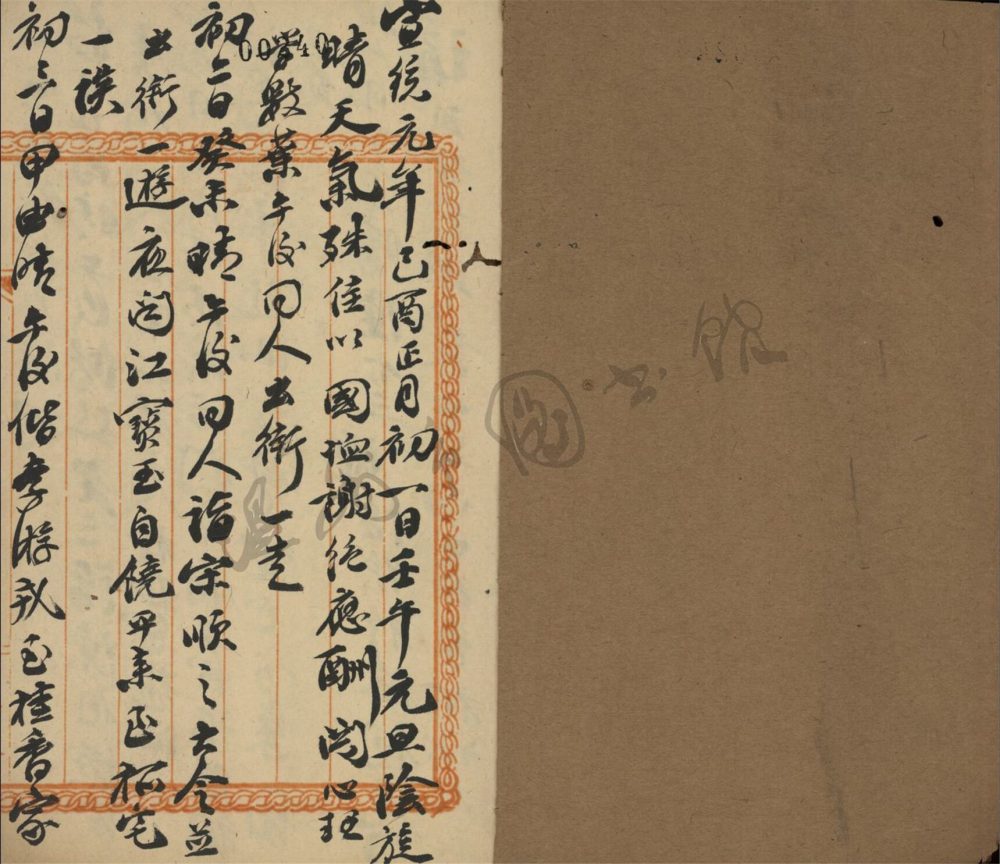 宣統元年己酉正月初一日壬午元旦陰旋
晴天氣殊佳以國恤謝絕應酬閱心理
學數葉午後同人出街一走
初二日癸未晴午後同人詣宋順之大令並
出街一遊夜閱江寶玉自饒平來至栢宅
一談
初三日甲申晴午後偕李游戎至桂香家
圖書館